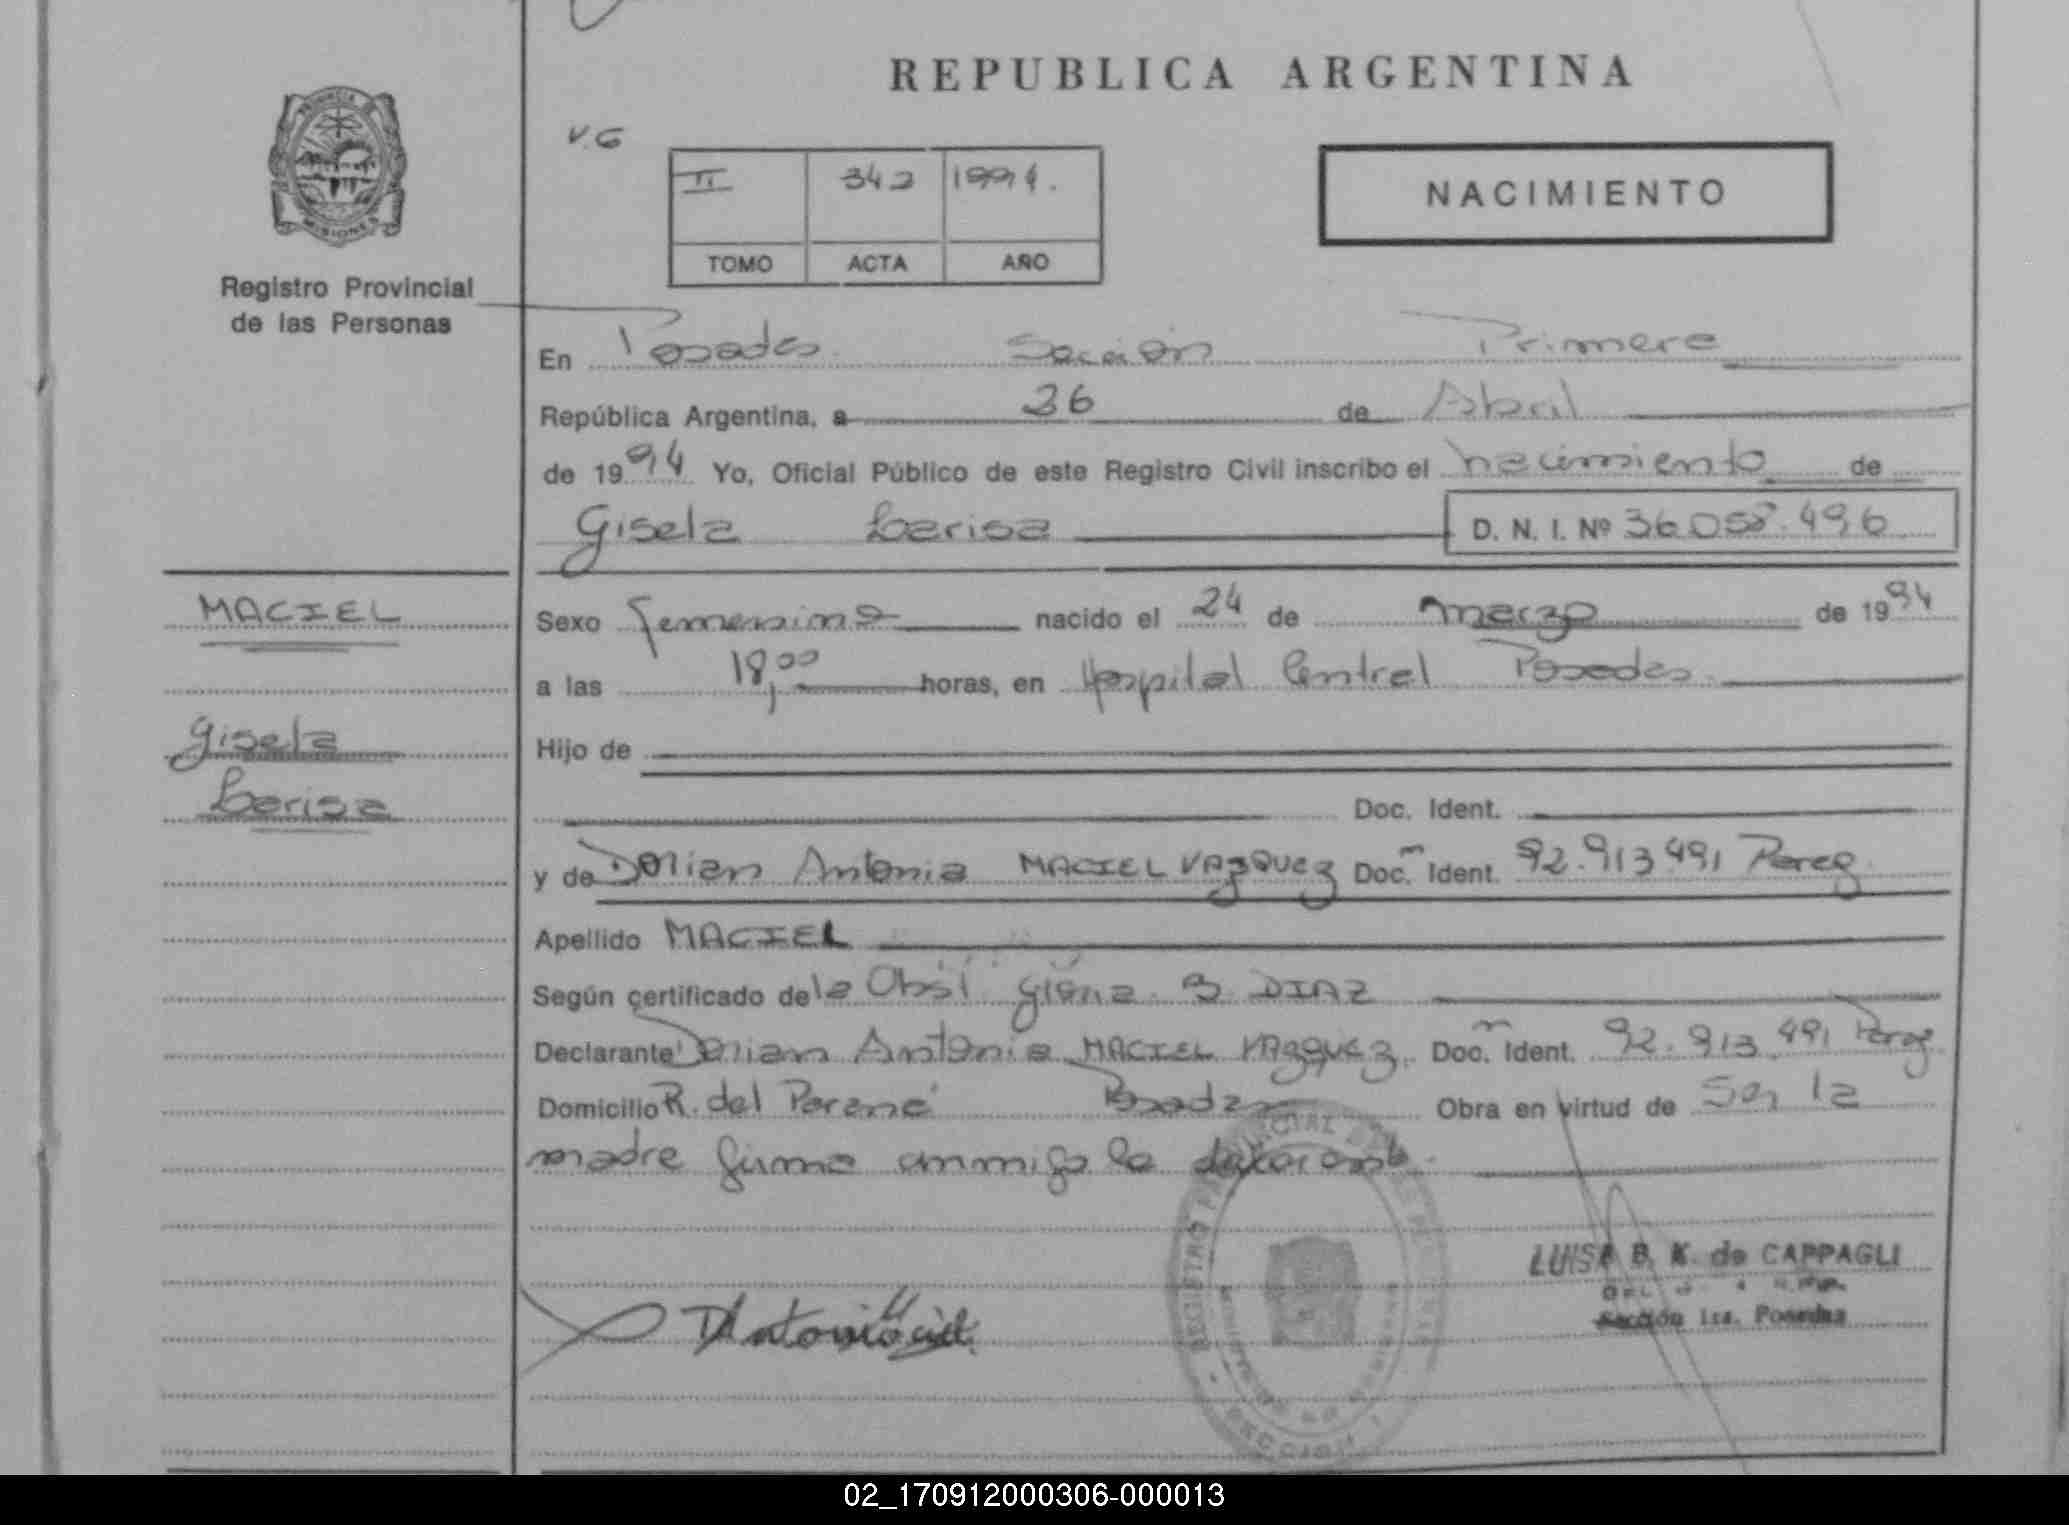 REPUBLICA ARGENTINA
V.G
II 342 1994.
TOMO ACTA AÑO
NACIMIENTO
PROVINCIA DE
MISIONES
Registro Provincial
de las Personas
En Posadas Sección Primera
República Argentina, a 26 de Abril
de 1994 Yo, Oficial Público de este Registro Civil inscribo el nacimiento de
Gisela Larisa D. N. I. Nº 36.058.496
MACIEL
Gisela
Larisa
Sexo femenino nacido el 24 de marzo de 1994
a las 18,00 horas, en Hospital Central Posadas.
Hijo de
Doc. Ident.
y de Dorian Antonia MACIEL VAZQUEZ Doc. Ident. 92.913.491 Parag
Apellido MACIEL
Según certificado de la Obst. Gloria B. DIAZ
Declarante Dorian Antonia MACIEL VAZQUEZ. Doc. Ident. 92.913.491 Parag
Domicilio R. del Paraná Posadas Obra en virtud de Ser la
madre firma conmigo la declarante.
LUISA B. K. de CAPPAGLI
Sección 1ra. Posadas
D Antonia Maciel
REGISTRO PROVINCIAL DE LAS PERSONAS
02_170912000306-000013